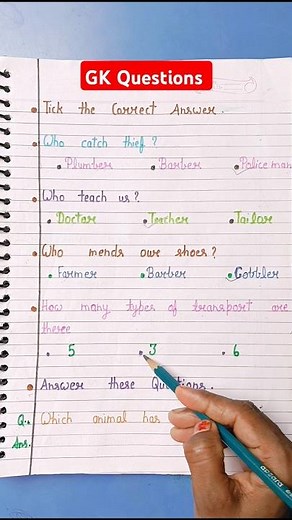 GK Questions
Tick the Correct Answer.
Who catch thief?
Plumber Barber Police man
Who teach us?
Doctor Teacher Tailor
Who mends our shoes?
Farmer Barber Cobbler
How many types of transport are
there
5 3 6
Answer these Questions.
Q. Which animal has
Ans.